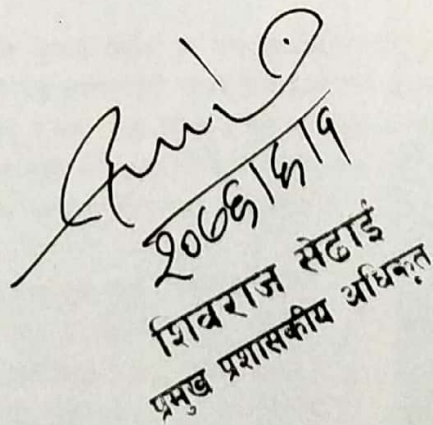 २०७६।६।१
शिवराज सेढाई
प्रमुख प्रशासकीय अधिकृत